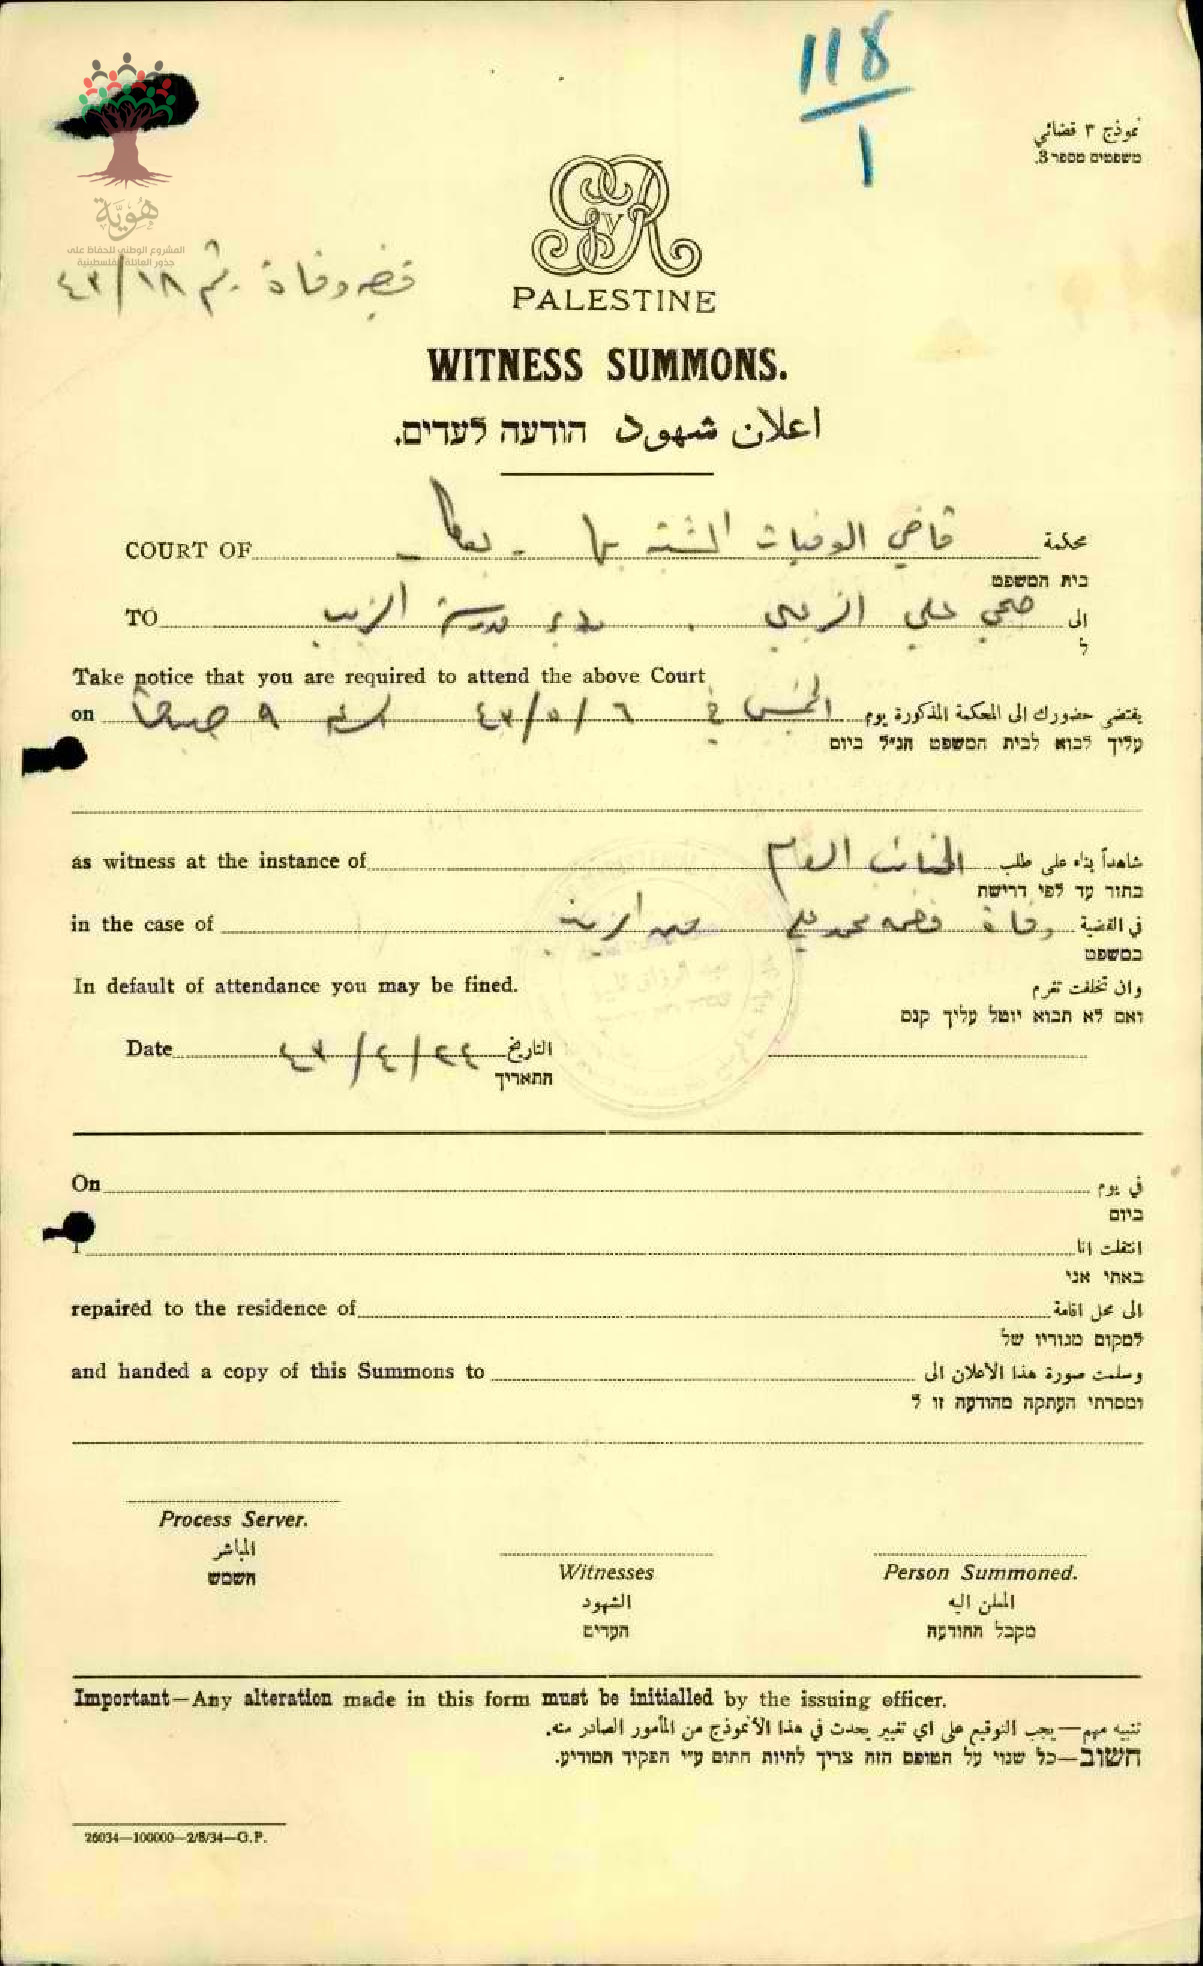 118
1
نموذج ٣ قضائي
משפטים מספר 3.
هُوِيَّة
المشروع الوطني للحفاظ على
جذور العائلة الفلسطينية
GVR
PALESTINE
قضية وفاة رقم ٤٣/١٨
WITNESS SUMMONS.
اعلان شهود הודעה לעדים.
COURT OF قاضي الوفيات المشتبه بها محكمة
בית המשפט
TO علي مدرسة الزيب الى
ל
Take notice that you are required to attend the above Court
on الخميس في ٤٣/٥/٦ ٩ صباحاً يقتضي حضورك الى المحكمة المذكورة يوم
עליך לבוא לבית המשפט הנ״ל ביום
as witness at the instance of النائب العام شاهداً بناء على طلب
בתור עד לפי דרישת
in the case of وفاة محمد علي من الزيب في القضية
במשפט
In default of attendance you may be fined. وان تخلفت تغرم
ואם לא תבוא יוטל עליך קנס
Date ٤٣/٤/٢٤ التاريخ
התאריך
On في يوم
ביום
I انتقلت انا
באתי אני
repaired to the residence of الى محل اقامة
למקום מגוריו של
and handed a copy of this Summons to وسلمت صورة هذا الاعلان الى
ומסרתי העתקה מהודעה זו ל
Process Server.
المباشر
השמש
Witnesses
الشهود
העדים
Person Summoned.
المعلن اليه
מקבל ההודעה
Important—Any alteration made in this form must be initialled by the issuing officer.
تنبيه مهم—يجب التوقيع على اي تغيير يحدث في هذا الأنموذج من المأمور الصادر منه.
חשוב—כל שנוי על הטופס הזה צריך להיות חתום ע״י הפקיד המודיע.
26034—100000—2/8/34—G.P.